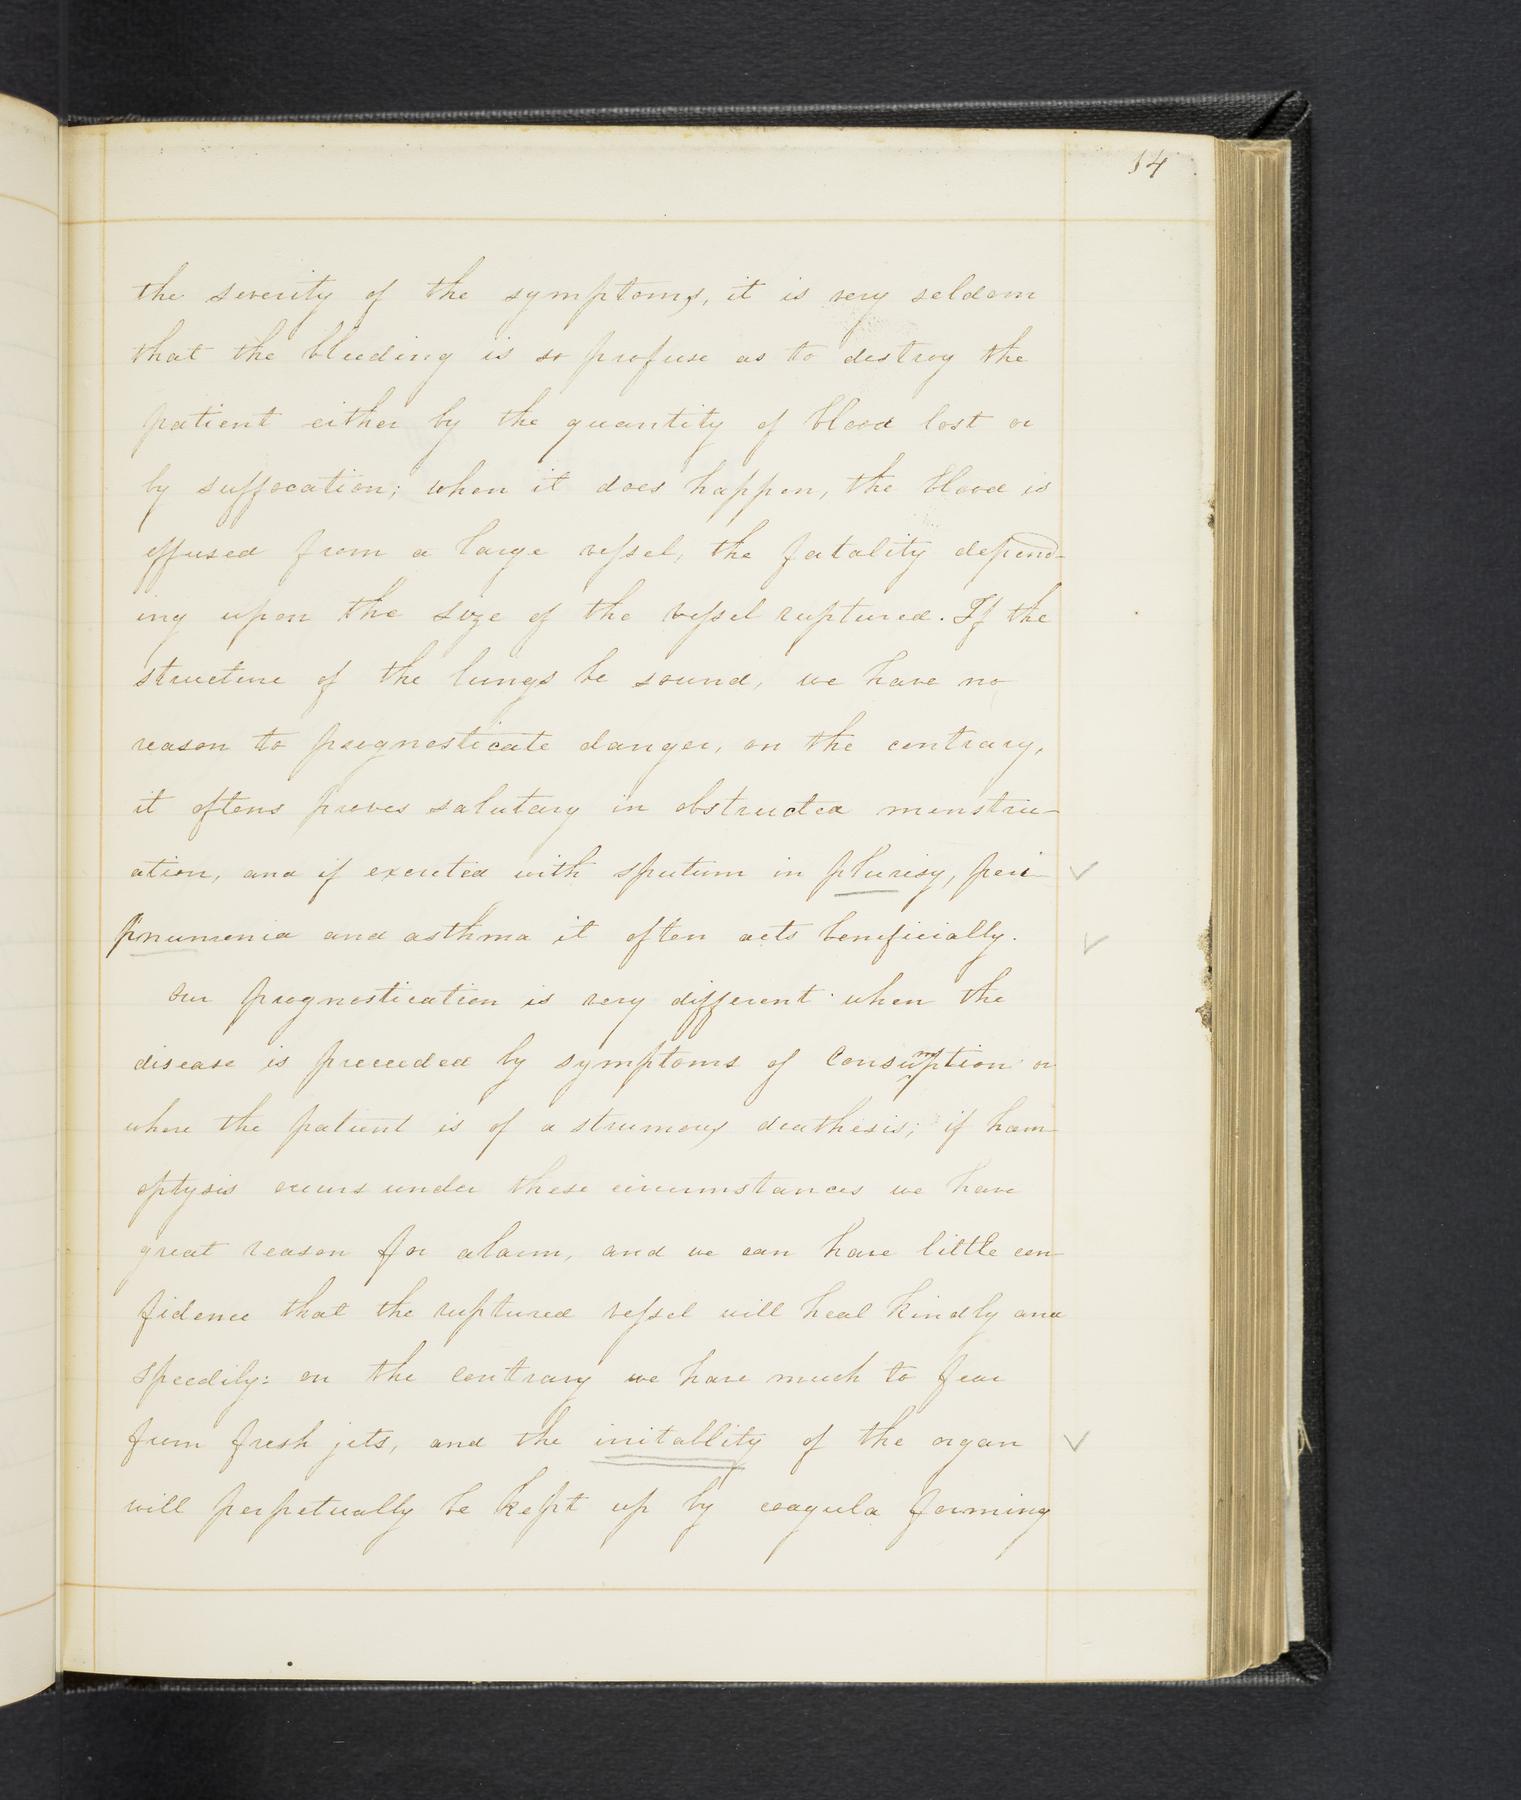 14
the severity of the symptoms, it is very seldom
that the bleeding is so profuse as to destroy the
patient either by the quantity of blood lost or
by suffocation; when it does happen, the blood is
effused from a large vessel, the fatality depend-
ing upon the size of the vessel ruptured. If the
structure of the lungs be sound, we have no
reason to prognosticate danger, on the contrary,
it oftens proves salutary in obstructed menstru-
ation, and if excreted with sputum in plurisy, peri
pnumonia and asthma it often acts beneficially.
Our prognostication is very different when the
disease is preceeded by symptoms of Consumption or
where the patient is of a strumous diathesis; if hæm
optysis occurs under these circumstances we have
great reason for alarm, and we can have little con-
fidence that the ruptured vessel will heal kindly and
speedily: on the contrary we have much to fear
from fresh jets, and the iritablity of the organ
will perpetually be kept up by coagula forming